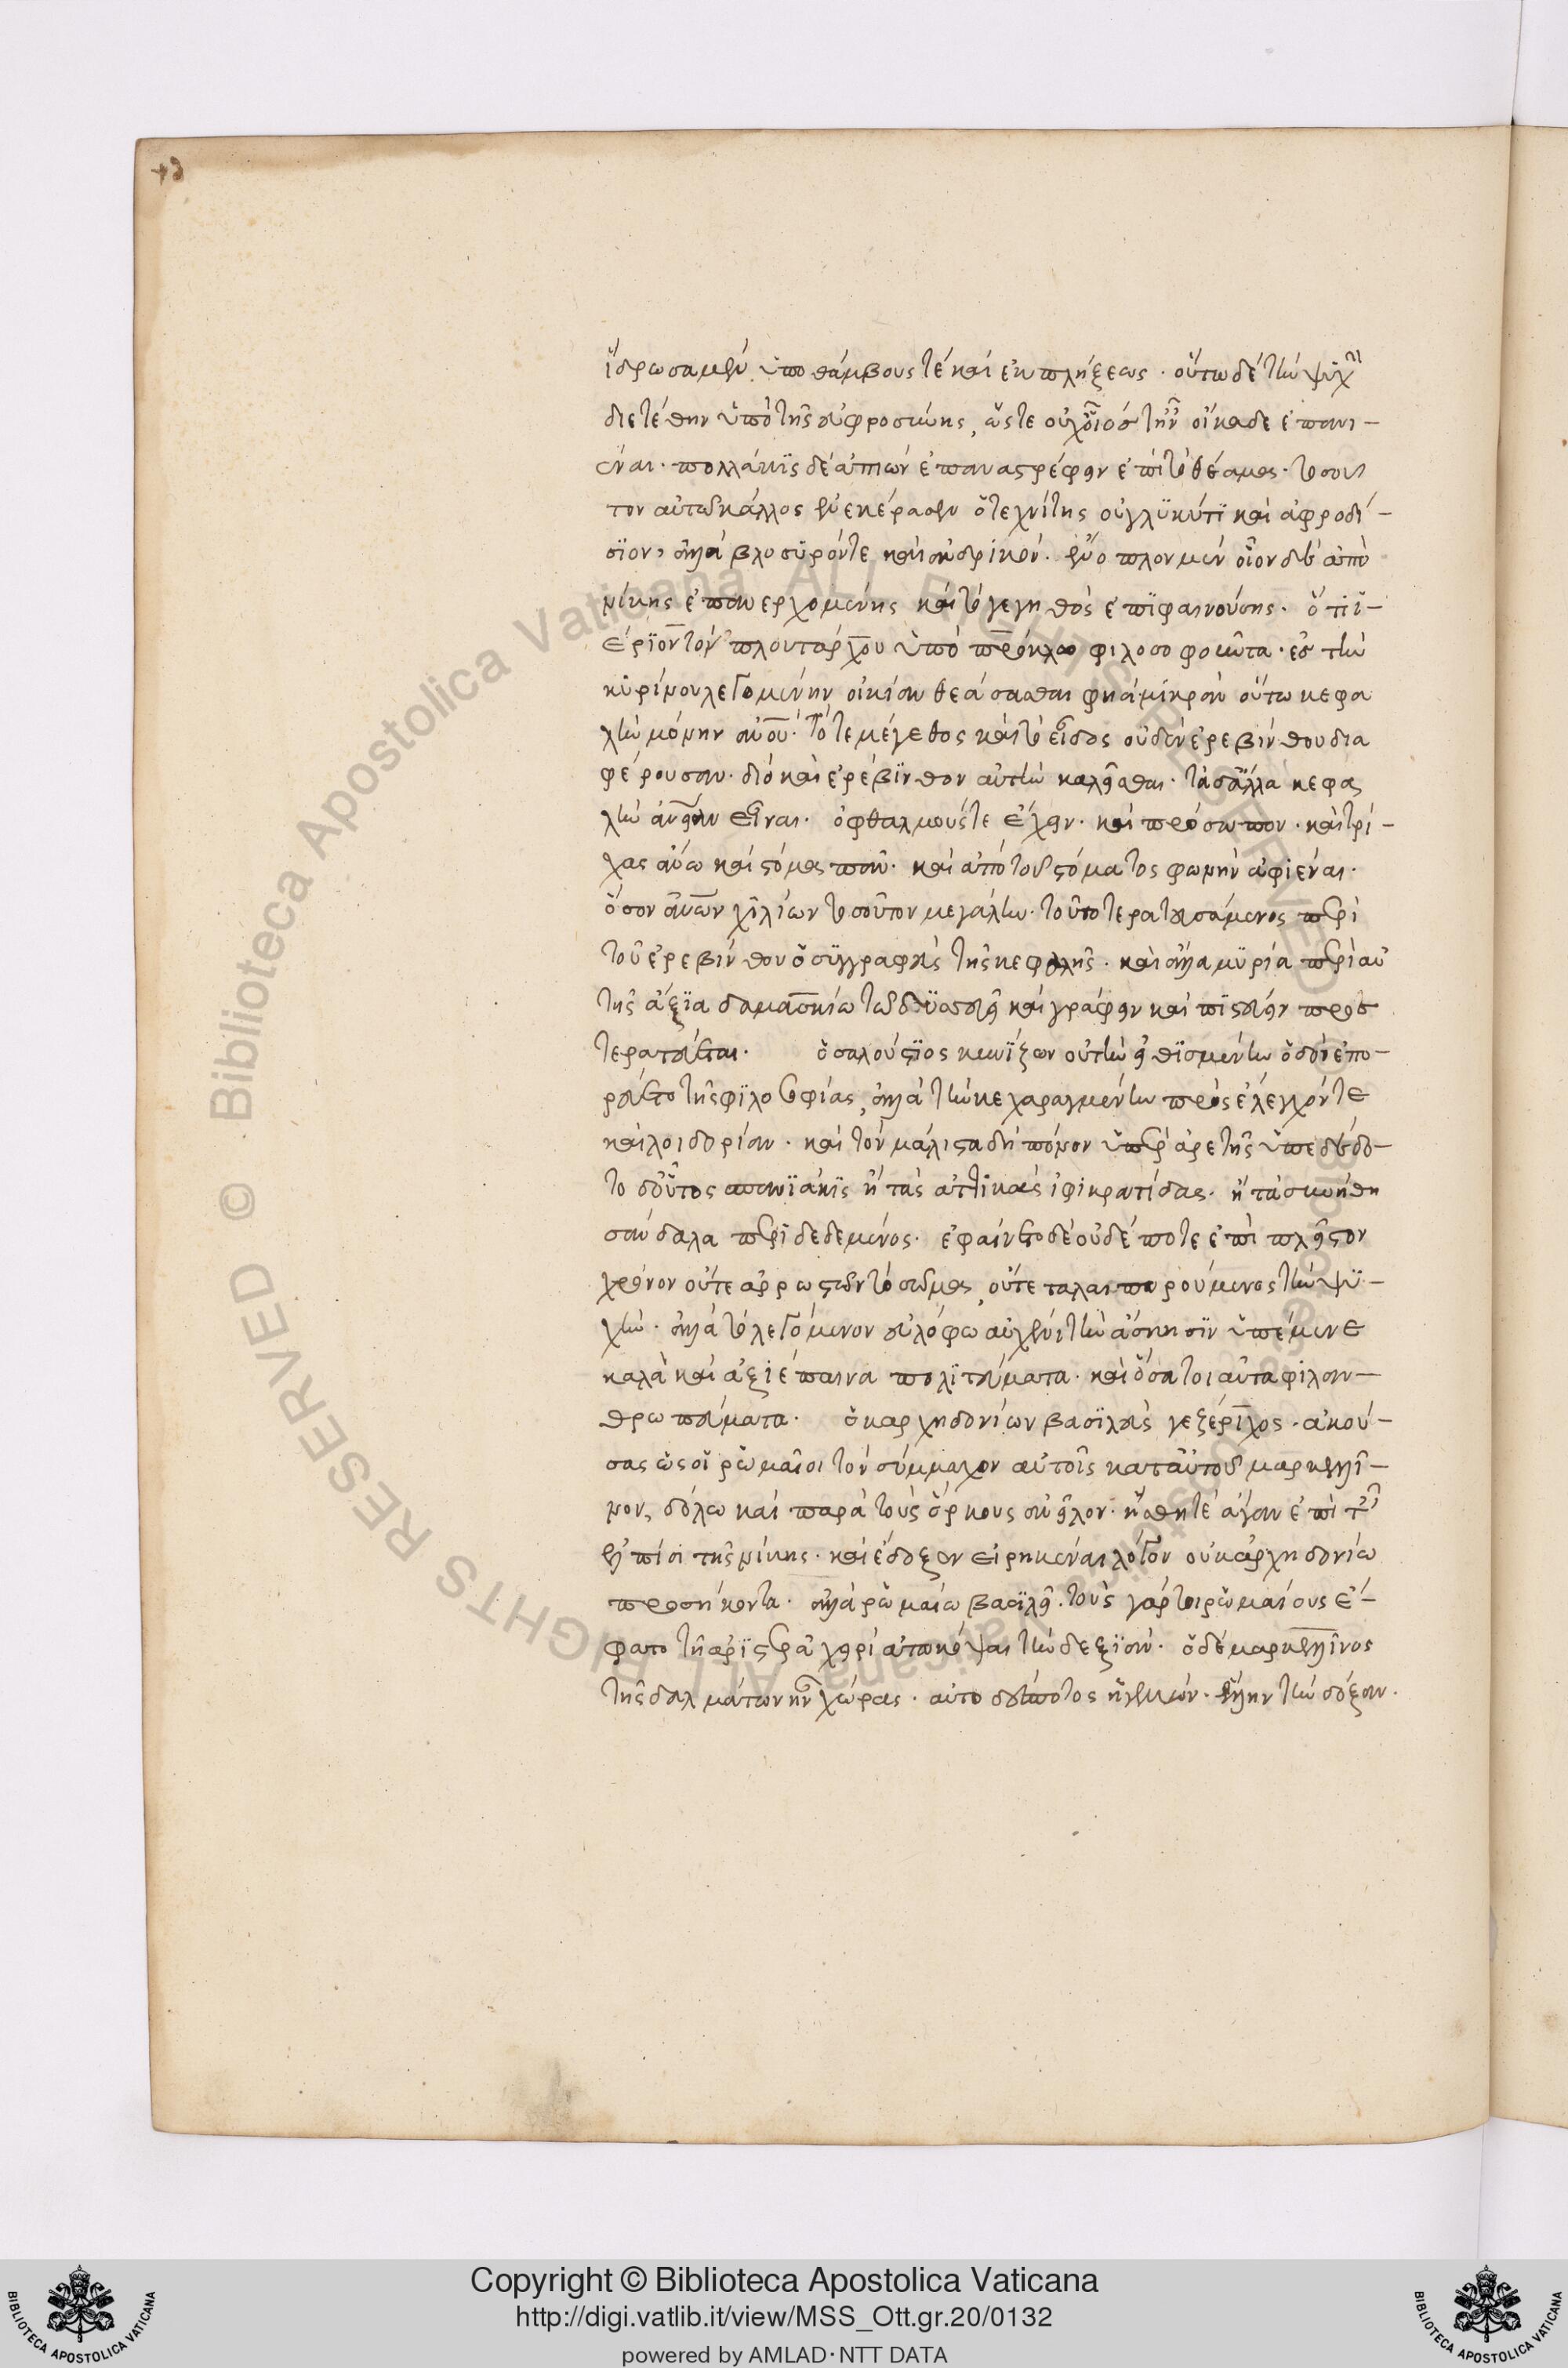 ἵδρωσα μὲν ὑπὸ θάμβους τὲ καὶ ἐκπλήξεως · οὕτω δὲ τὴν ψυχὴν
διετέθην ὑπὸ τῆς εὐφροσύνης, ὥστε οὐχ οἷός τ' ἦν οἴκαδε ἐπανι-
έναι · πολλάκις δὲ ἀπιὼν ἐπαναστρέφειν ἐπὶ τὸ θέαμα · τοσοῦ
τον αὐτῶ κάλλος ἐνεκέρασεν ὁ τεχνίτης οὐ γλυκύ τι καὶ ἀφροδί-
σιον, ἀλλὰ βλοσυρόν τε καὶ ἀνδρικόν · ἔνοπλον μὲν οἷον δὲ ἀπὸ
νίκης ἐπανερχομένης καὶ τὸ γεγηθὸς ἐπιφαινούσης · ὅτι ἱ-
έριον τὸν πλουτάρχου ὑπὸ πρόκλω φιλοσοφοῦντα · ἐς τὴν
κυρίνου λεγομένην οἰκίαν θεάσασθαι φησὶ μικρὰν οὕτω κεφα
λὴν μόνην ἀνθρώπου · τό τε μέγεθος καὶ τὸ εἶδος οὐδὲν ἐρεβίνθου δια
φέρουσαν · διὸ καὶ ἐρέβινθον αὐτὴν καλεῖσθαι · τὰ δ' ἄλλα κεφα
λὴν ἀνθρωπείαν εἶναι · ὀφθαλμούς τε ἔχειν · καὶ πρόσωπον · καὶ τρί-
χας ἄνω καὶ στόμα πᾶν · καὶ ἀπὸ τοῦ στόματος φωνὴν ἀφιέναι ·
ὅσον ἀνθρώπων χιλίων τοσοῦτον μεγάλην · τοῦτο τερατευσάμενος περὶ
τοῦ ἐρεβίνθου ὁ συγγραφεὺς τῆς κεφαλῆς · καὶ ἄλλα μυρία περὶ αὐ
τῆς ἄξια δαμασκίω τῶ δυσσεβεῖ καὶ γράφειν καὶ πιστεύειν προσ
τερατεύεται · ὁ σαλούστιος κυνίζων οὐ τὴν εἰθισμένην ὁδὸν ἐπο-
ρεύετο τῆς φιλοσοφίας, ἀλλὰ τὴν κεχαραγμένην πρὸς ἔλεγχόν τε
καὶ λοιδορίαν · καὶ τὸν μάλιστα δὴ πόνον ὑπὲρ ἀρετῆς · ὑπεδέδε-
το δ' οὗτος σπανιάκις ἢ τὰς ἀττικὰς ἰφικρατίδας · ἢ τὰ συνήθη
σάνδαλα περιδεδεμένος · ἐφαίνετο δὲ οὐδέποτε ἐπὶ πλεῖστον
χρόνον οὔτε ἀρρωστῶν τὸ σῶμα, οὔτε ταλαιπωρούμενος τὴν ψυ-
χὴν · ἀλλὰ τὸ λεγόμενον εὐλόφω αὐχένι τὴν ἄσκησιν ὑπέμεινε
καλὰ καὶ ἀξιέπαινα πολιτεύματα · καὶ ὅσα τοιαῦτα φιλαν-
θρωπεύματα · ὁ καρχηδονίων βασιλεὺς γεζέριχος · ἀκού-
σας ὡς οἱ ῥωμαῖοι τὸν σύμμαχον αὐτοῖς κατ' αὐτοῦ μαρκελλῖ-
νον, δόλω καὶ παρὰ τοὺς ὅρκους ἀνεῖλον · ἥσθη τε ἄγαν ἐπὶ τῆ
ἐλπίσι τῆς νίκης · καὶ ἔδοξεν εἰρηκέναι λόγον οὐ καρχηδονίω
προσήκοντα · ἀλλὰ ῥωμαίω βασιλεῖ · τοὺς γάρ τοι ῥωμαίους ἔ-
φατο τῆ ἀριστερᾶ χειρὶ ἀποκόψαι τὴν δεξιὰν · ὁ δὲ μαρκελλῖνος
τῆς δαλμάτων ἦν χώρας · αὐτοδέσποτος ἡγεμών · ἕλλην τὴν δόξαν ·
Copyright © Biblioteca Apostolica Vaticana
http://digi.vatlib.it/view/MSS_Ott.gr.20/0132
powered by AMLAD·NTT DATA